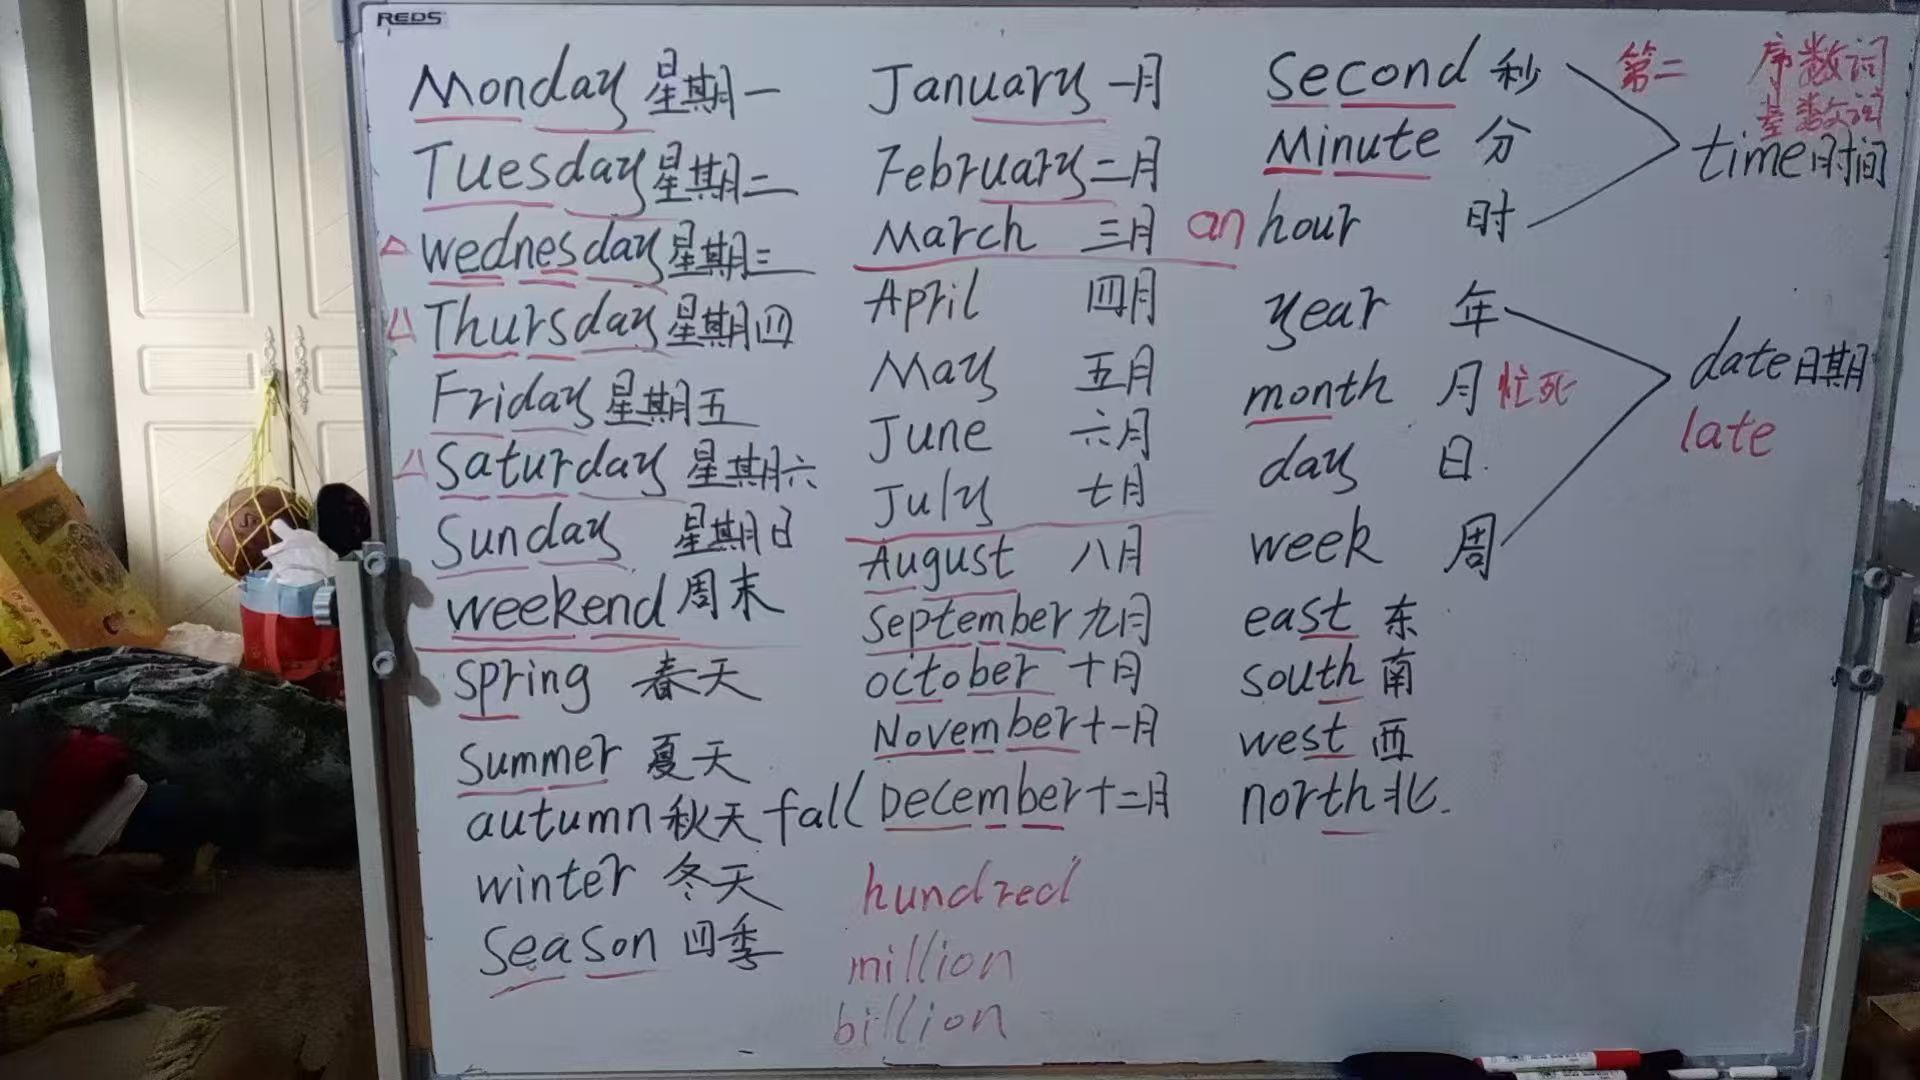 REDS
Monday 星期一
Tuesday 星期二
Wednesday 星期三
Thursday 星期四
Friday 星期五
Saturday 星期六
Sunday 星期日
weekend 周末
spring 春天
summer 夏天
autumn 秋天 fall
winter 冬天
season 四季
January 一月
February 二月
March 三月
April 四月
May 五月
June 六月
July 七月
August 八月
September 九月
october 十月
November 十一月
December 十二月
hundred
million
billion
second 秒 第二
Minute 分
an hour 时
序数词
基数词
time 时间
year 年
month 月 忙死
day 日.
week 周
date 日期
late
east 东
south 南
west 西
north 北.